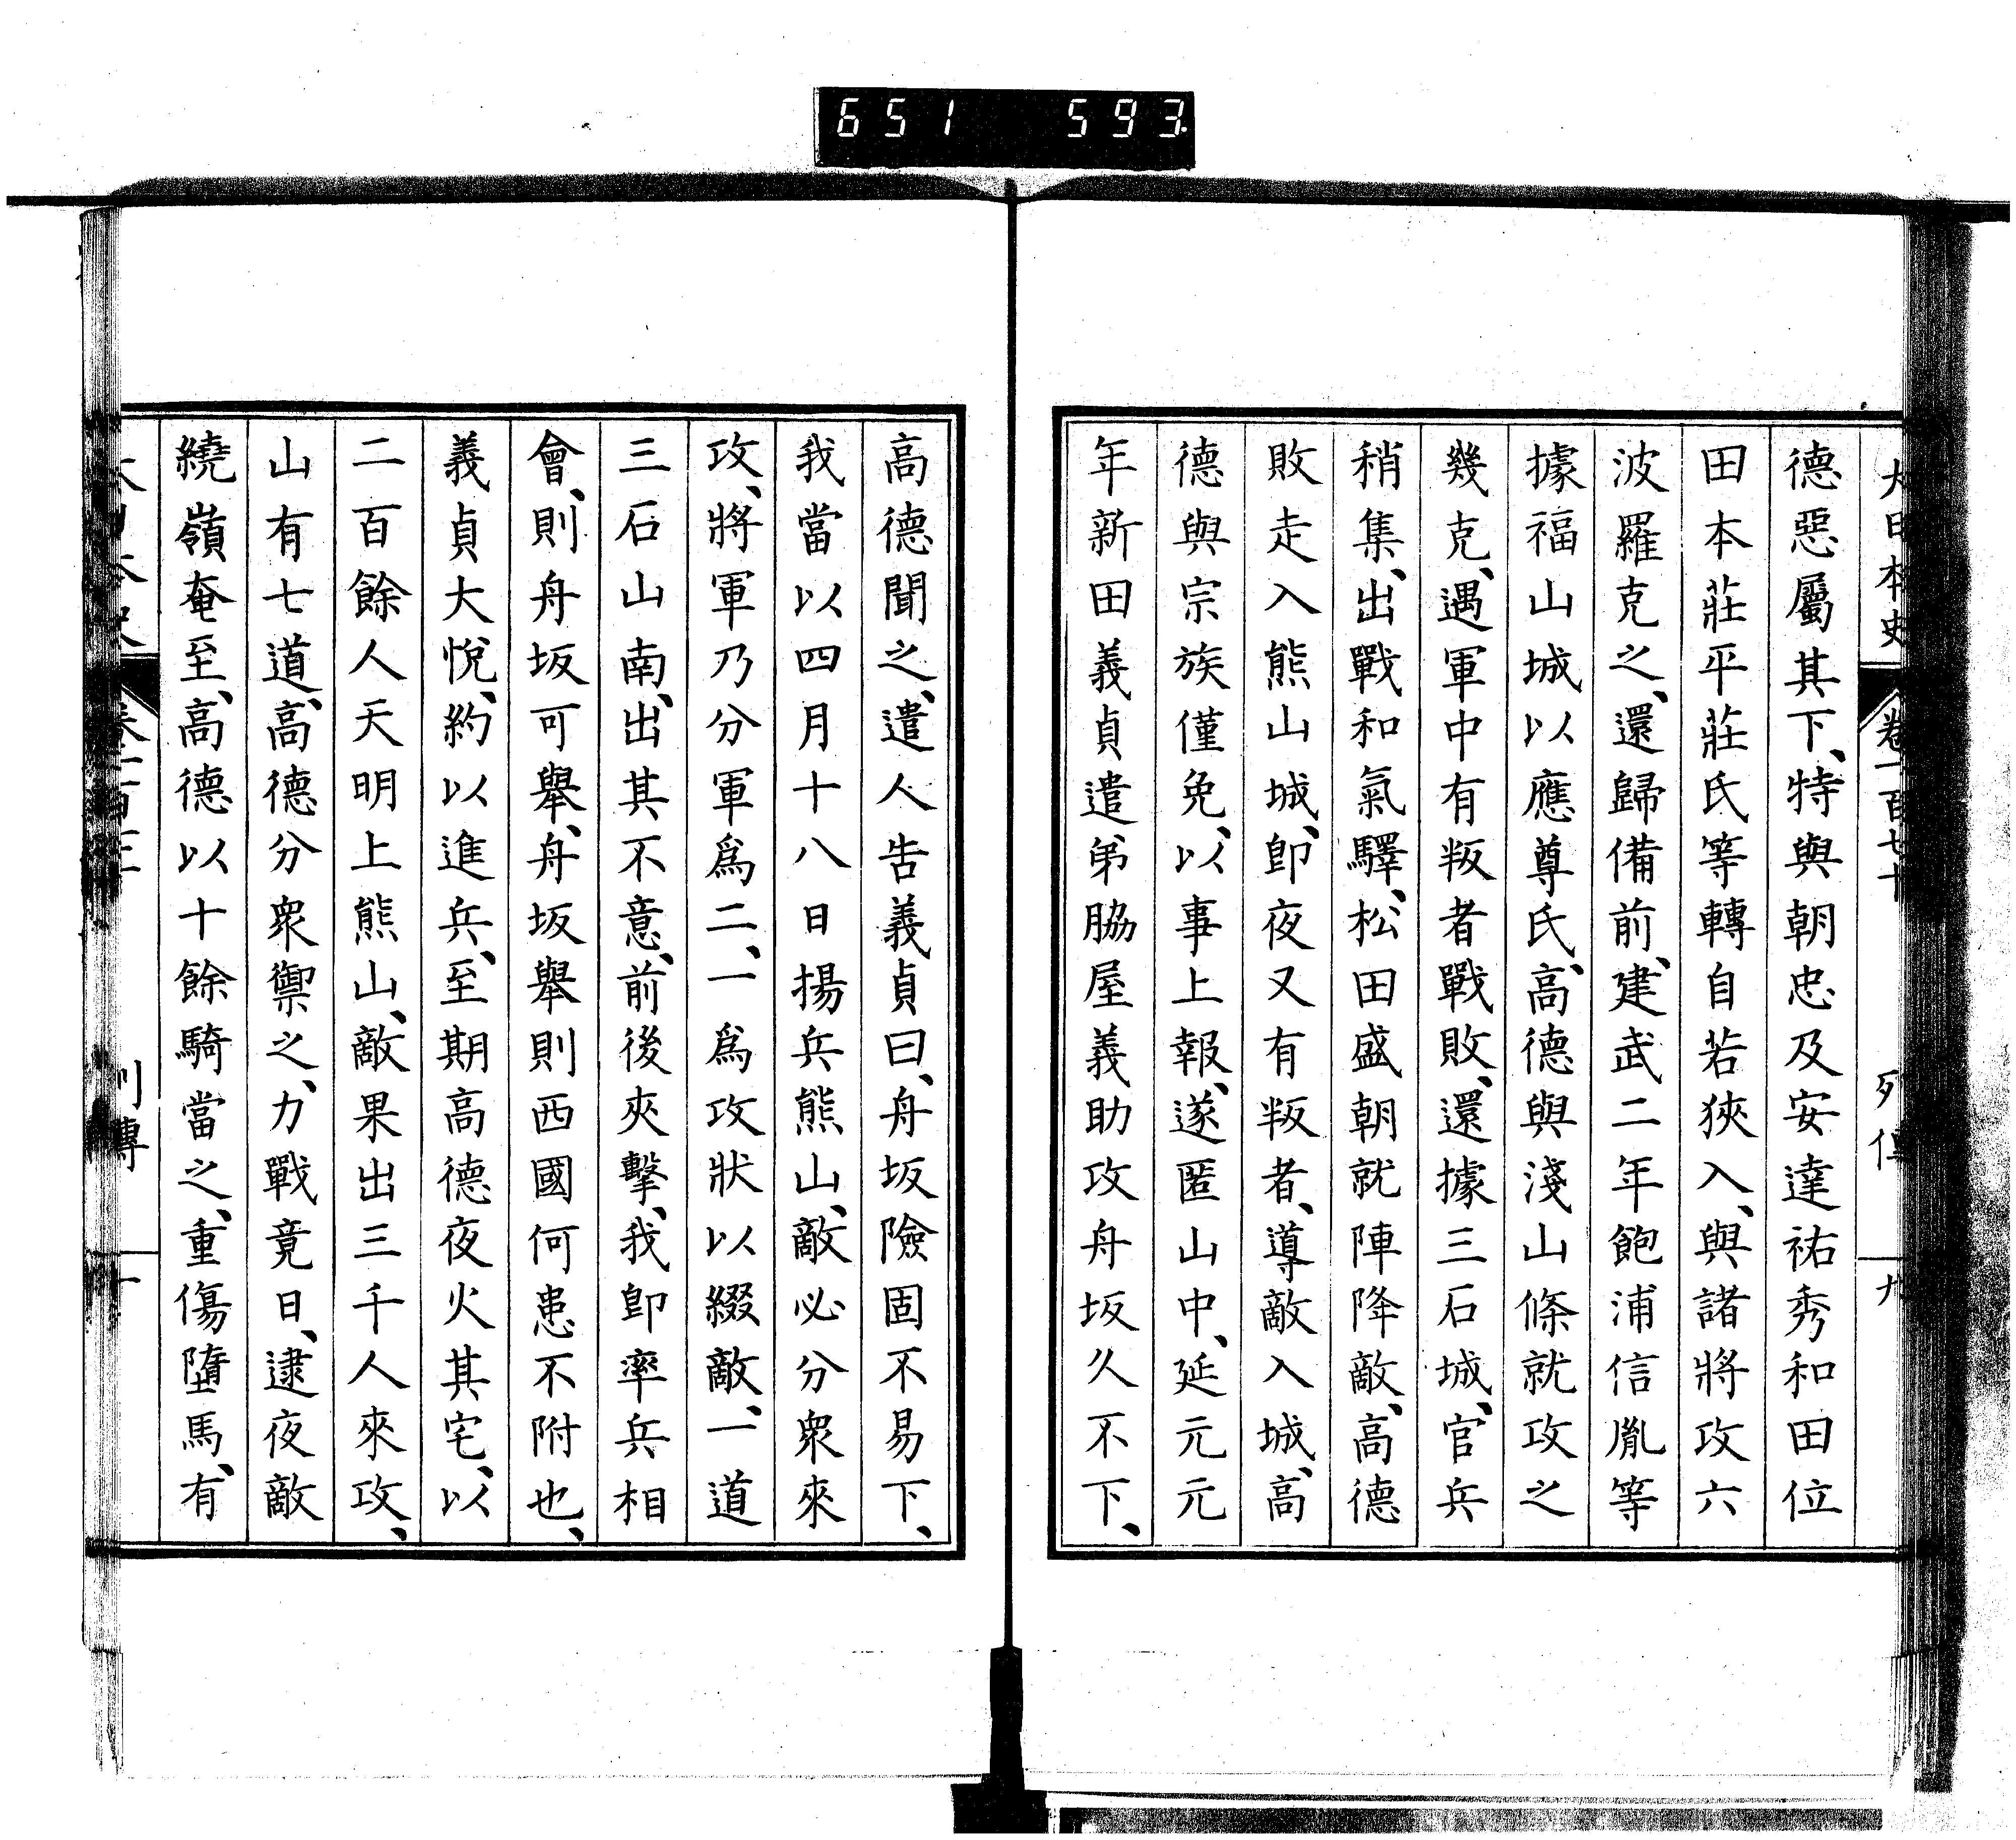 651 593
大日本史 卷一百七十 列傳 九
德惡屬其下、特與朝忠及安達祐秀和田位
田本莊平莊氏等轉自若狹入、與諸將攻六
波羅克之、還歸備前、建武二年飽浦信胤等
據福山城以應尊氏、高德與淺山條就攻之
幾克、遇軍中有叛者戰敗、還據三石城、官兵
稍集、出戰和氣驛、松田盛朝就陣降敵、高德
敗走入熊山城、卽夜又有叛者、導敵入城、高
德與宗族僅免、以事上報、遂匿山中、延元元
年新田義貞遣弟脇屋義助攻舟坂久不下、
高德聞之、遣人告義貞曰、舟坂險固不易下、
我當以四月十八日揚兵熊山、敵必分衆來
攻、將軍乃分軍爲二、一爲攻狀以綴敵、一道
三石山南、出其不意、前後夾擊、我卽率兵相
會、則舟坂可舉、舟坂舉則西國何患不附也、
義貞大悅、約以進兵、至期高德夜火其宅、以
二百餘人天明上熊山、敵果出三千人來攻、
山有七道、高德分衆禦之、力戰竟日、逮夜敵
繞嶺奄至、高德以十餘騎當之、重傷墮馬、有
列傳